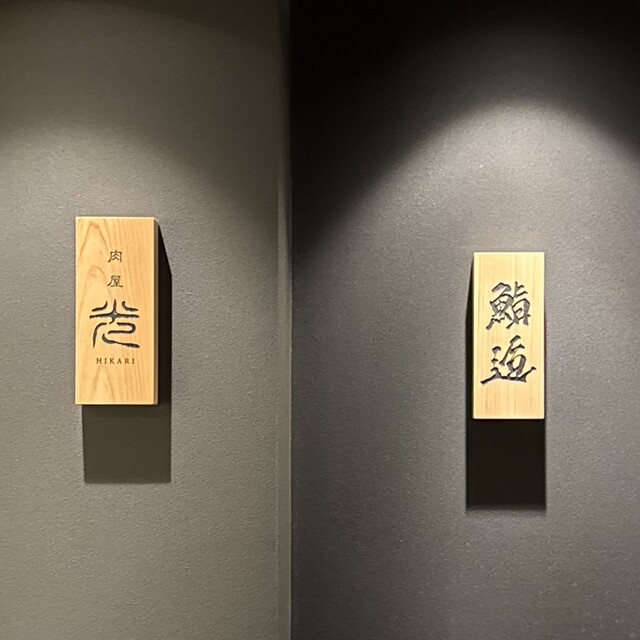 肉
屋
光
HIKARI
鮨